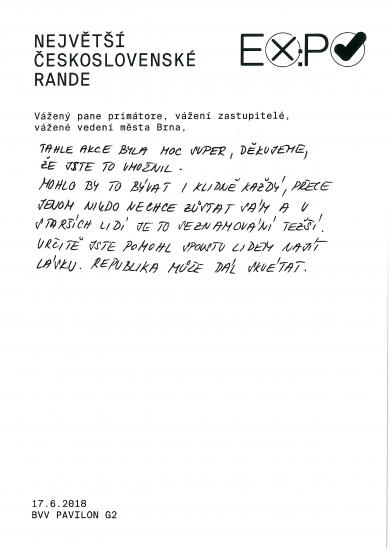 NEJVĚTŠÍ
ČESKOSLOVENSKÉ
RANDE
EX:PO
Vážený pane primátore, vážení zastupitelé,
vážené vedení města Brna,
TAHLE AKCE BYLA MOC SUPER, DĚKUJEME,
ŽE JSTE TO UMOŽNIL.
MOHLO BY TO BÝVAT I KLIDNĚ KAŽDÝ, PŘECE
JENOM NIKDO NECHCE ZŮSTAT SÁM A U
STARŠÍCH LIDÍ JE TO SEZNAMOVÁNÍ TEŽŠÍ.
URČITĚ JSTE POMOHL SPOUSTU LIDEM NAJÍT
LÁSKU. REPUBLIKA MŮŽE DÁL SKVÉTAT.
17.6.2018
BVV PAVILON G2